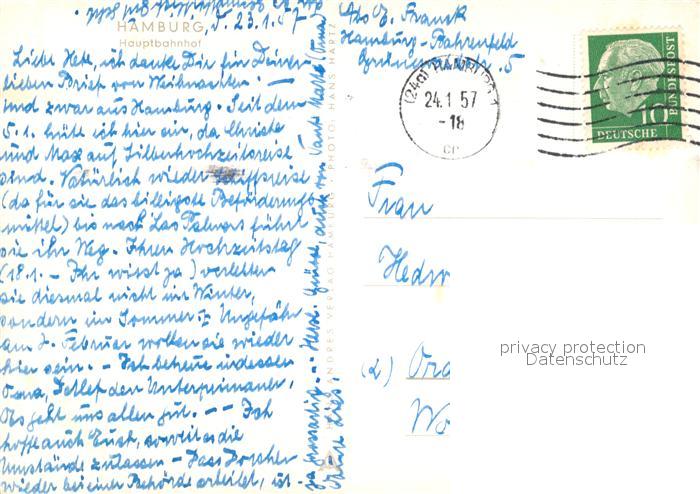 HAMBURG
Hauptbahnhof
d. 23.1.57
Liebe Hete, ich danke Dir für Deinen
lieben Brief von Weihnachten. –
und zwar aus Hamburg. Seit dem
5.1. hüte ich hier ein, da Christe
und Max auf Silberhochzeitsreise
sind. Natürlich wieder Schiffsreise
(da für sie das billigste Beförderungs
mittel) bis nach Las Palmas führt
sie ihr Weg. Ihren Hochzeitstag
(18.1. – Ihr wisst ja) verlebten
sie diesmal nicht im Winter,
sondern im Sommer. Ungefähr
am 7. Februar wollen sie wieder
hier sein. – Ich betreue indessen
Oma, Detlef den Unterprimaner.
Es geht uns allen gut. – – Ich
hoffe auch Euch, soweit es die
Umstände zulassen – Dass Dorchen
wieder bei einer Behörde arbeitet, ist
ja grossartig. – Herzl. Grüsse, auch von Tante
Lies.
ANDRES VERLAG HAMBURG PHOTO: HANS HARTZ
Abs. E. Frank
Hamburg-Bahrenfeld
5
(24a) HAMBURG 1
24.1 57
-18
cc
DEUTSCHE
BUNDESPOST
10
Frau
Hedw
(2) Ora
Wo
privacy protection
Datenschutz